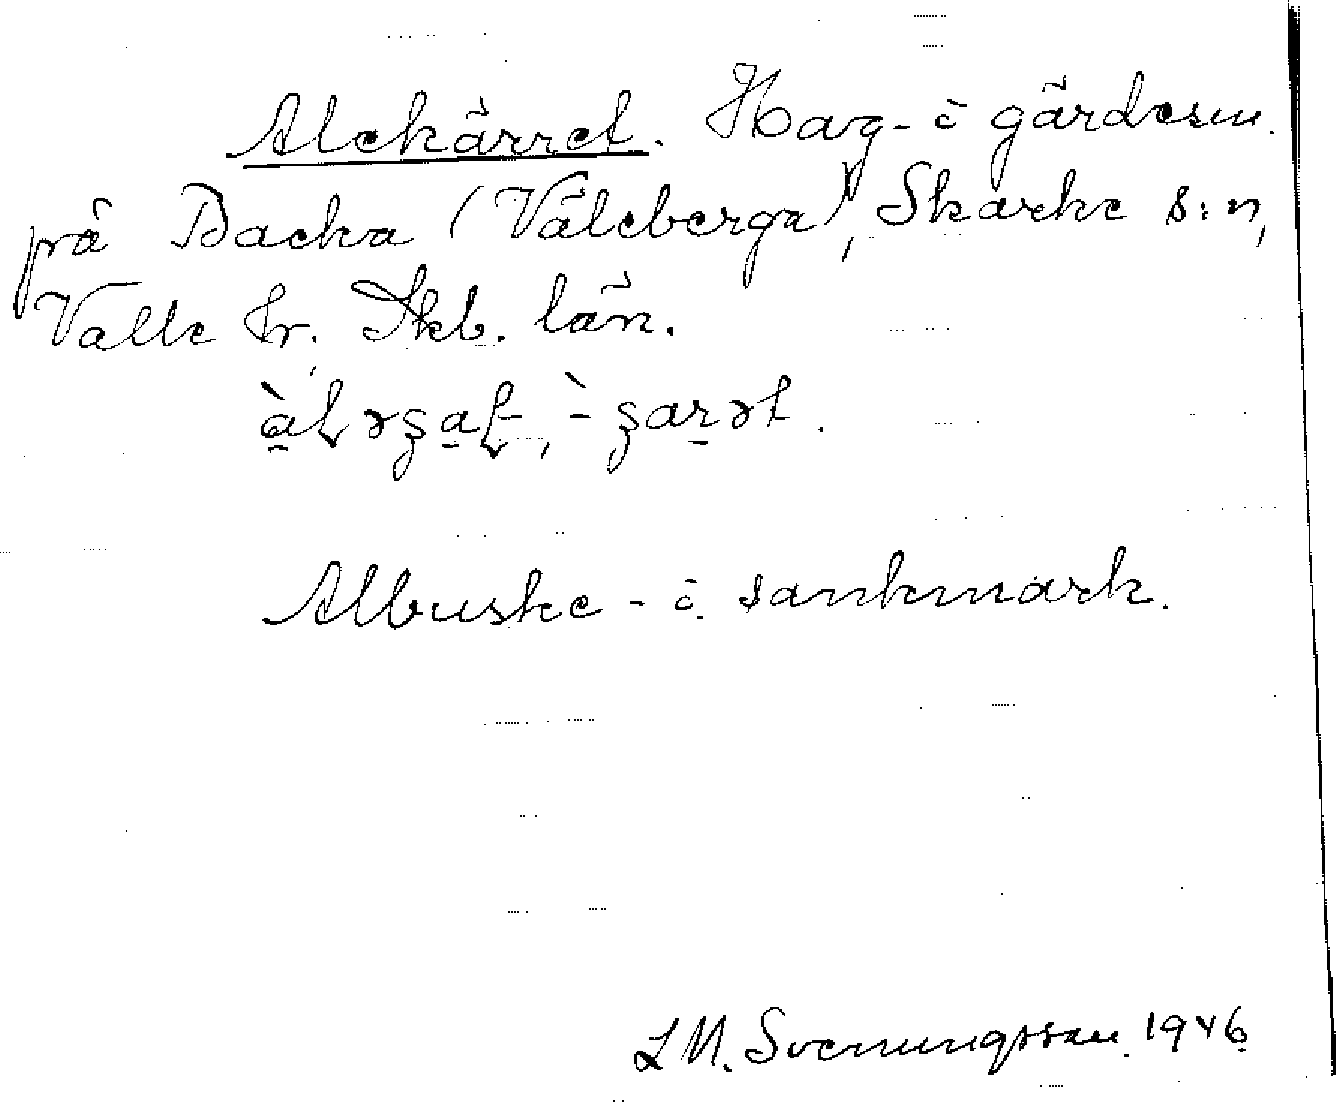 Alekärret. Hag- o gärdesm.
på Backa (Våleberga), Skarke s:n,
Valle hr. Skb. län.
Albuske- o. sankmark.
L M. Svenungsson 1946